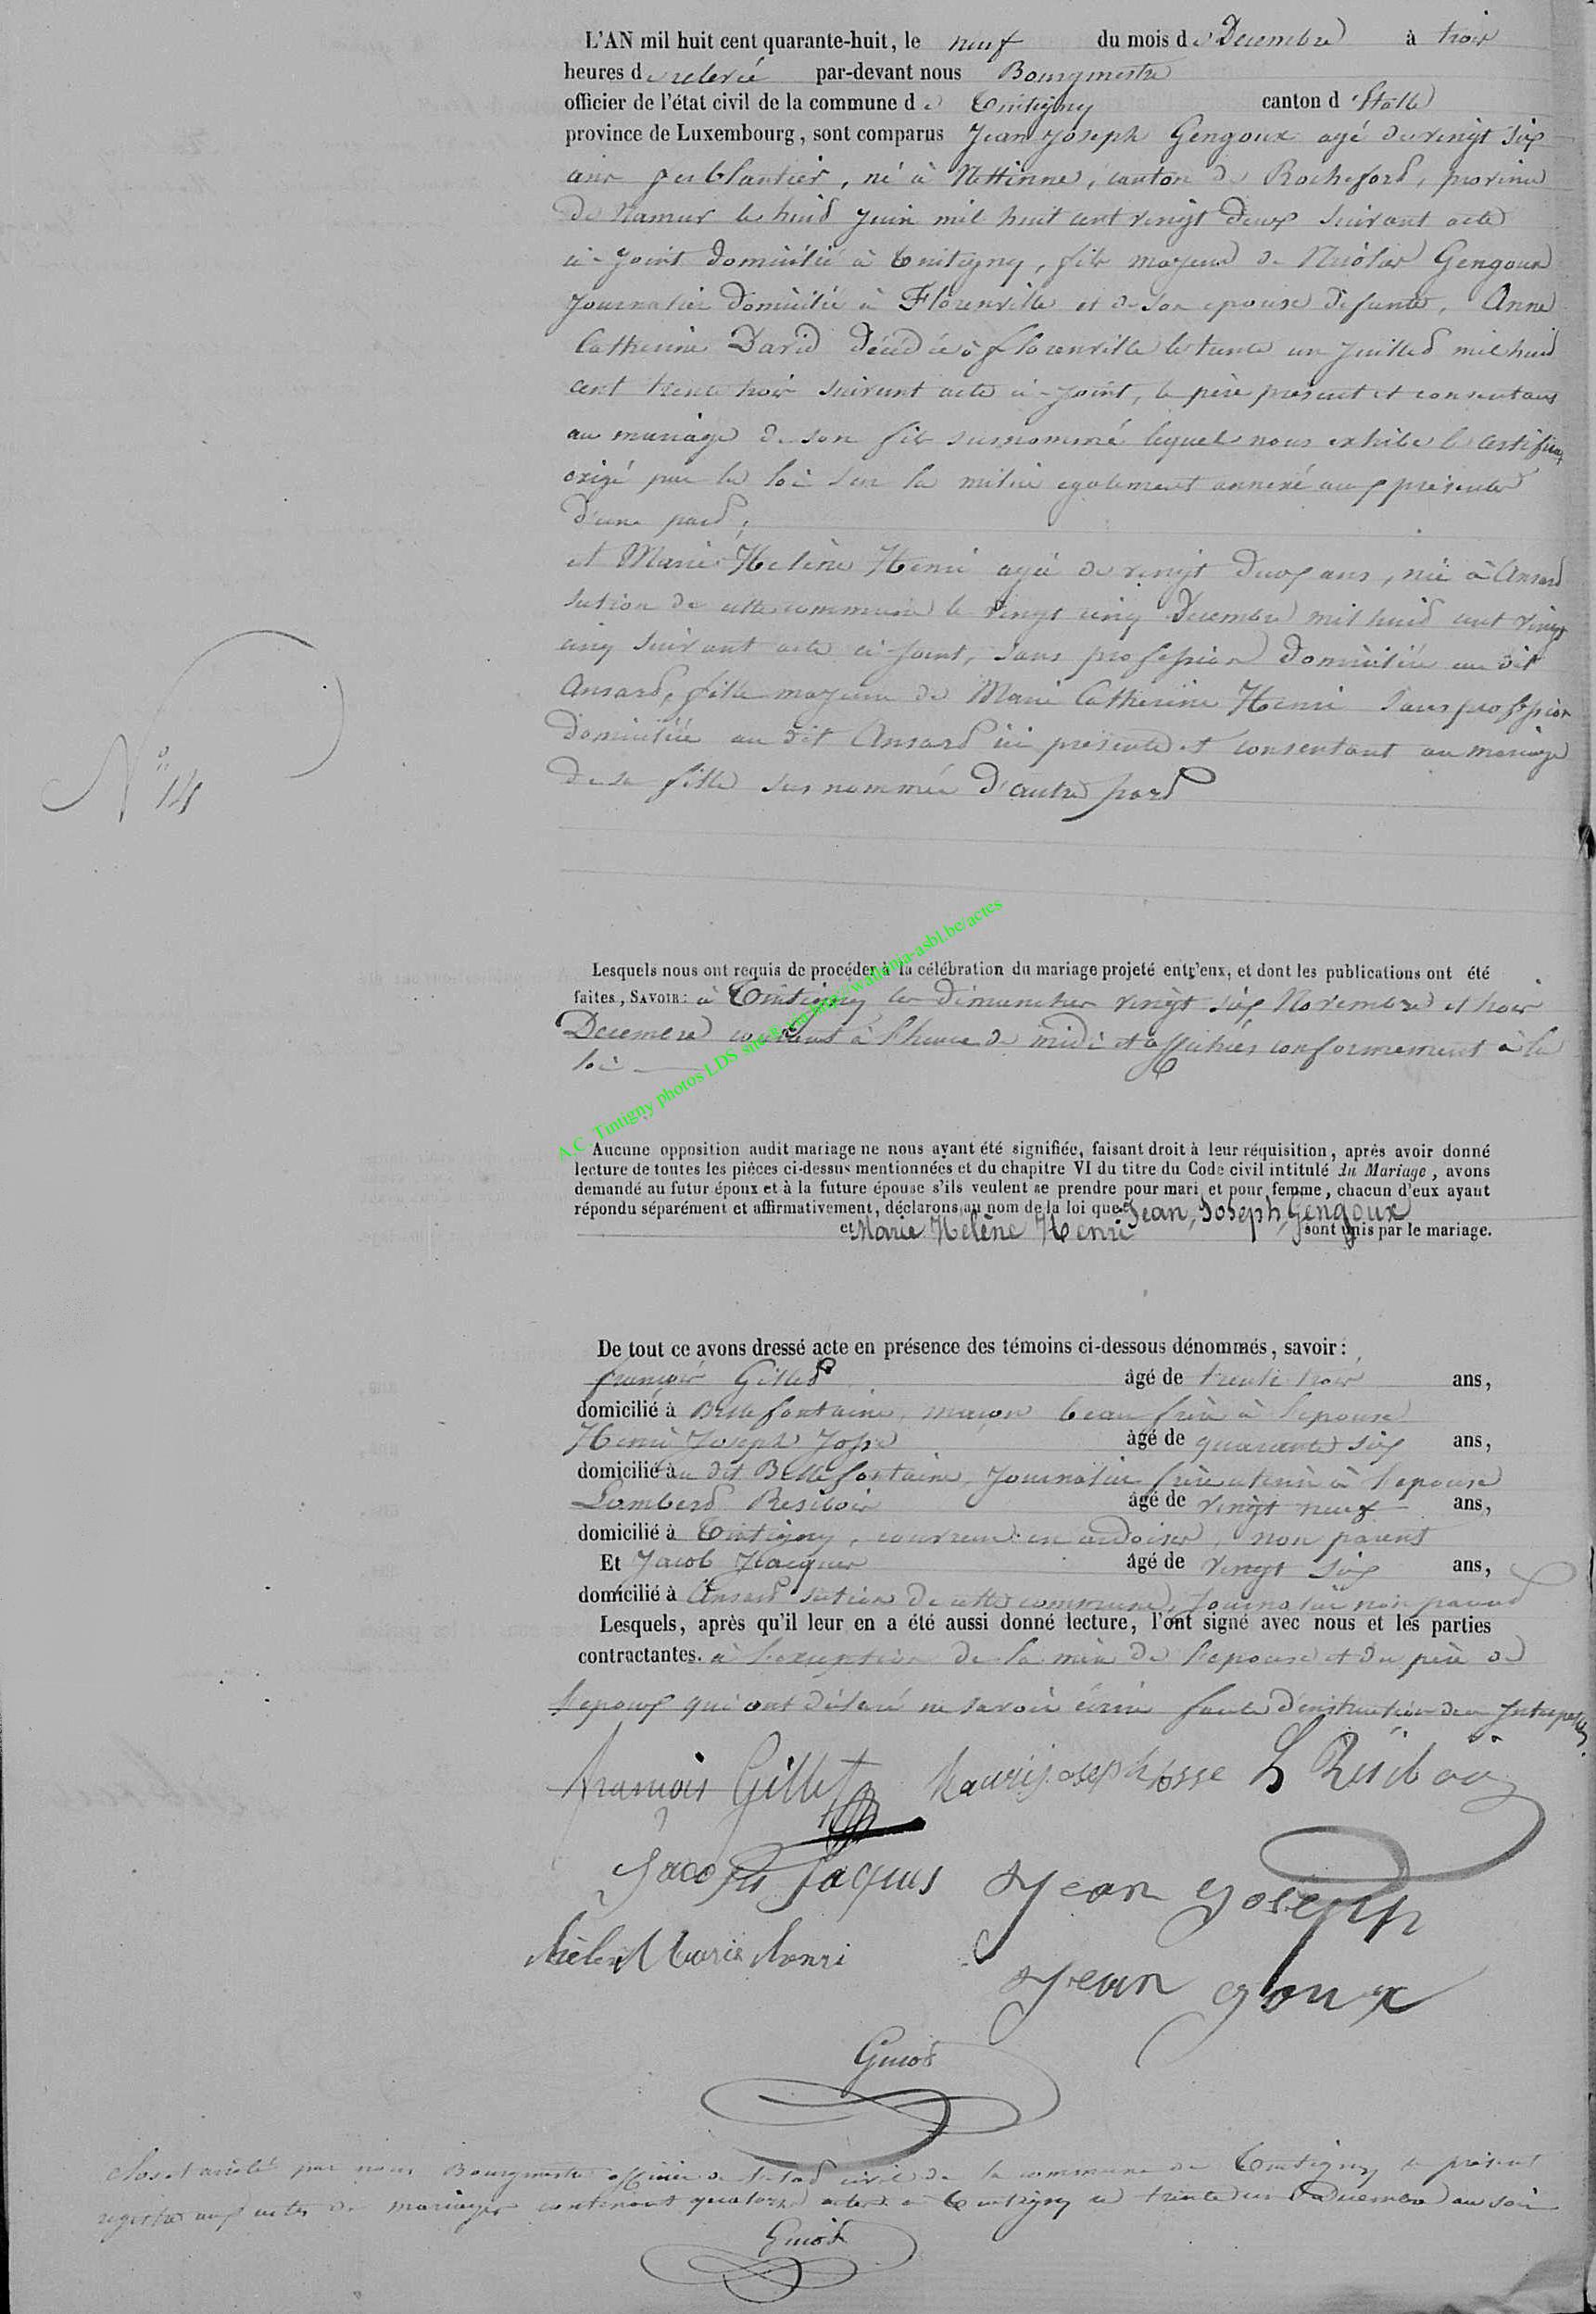 L'AN mil huit cent quarante-huit, le neuf du mois de Decembre à trois
heures de relevée par-devant nous Bourgmestre
officier de l'état civil de la commune de Tintigny canton d'Etalle
province de Luxembourg, sont comparus Jean Joseph Gengoux agé de vingt six
ans ferblantier, né à Nettinne, canton de Rocheford, province
de Namur le huid Juin mil huit cent vingt deux suivant acte
ci-joint domicilié à Tintigny, fils majeur de Nicolas Gengoux
Journalier domicilié à Florenville et de son epouse defunte, Anne
Catherine David décédée à florenville le trente un Juilled mil huid
cent trente trois suivant acte ci-joint, le père présent et consentans
au mariage de son fils susnommé lequel nous exhibe le certificat
exigé par la loi sur la milice egalement annexé aux présentes
d'une pard,
et Marie Helène Henri agée de vingt deux ans, née à Ansard
section de cette commune le vingt cinq Decembre mil huid cent vingt
cinq suivant acte ci-joint, sans profession domiciliée au dit
Ansard, fille majeure de Marie Catherine Henri sans profession
domiciliée au dit Ansard ici présente et consentant au mariage
de sa fille susnommée d'autre pard
N° 14
Lesquels nous ont requis de procéder à la célébration du mariage projeté entr'eux, et dont les publications ont été
faites, SAVOIR: à Tintigny les dimanches vingt six Novembre et trois
Decembre courant à l'heure de midi et affichées conformement à la
loi
A.C. Tintigny photos LDS via http://wallonia-asbl.be/actes
Aucune opposition audit mariage ne nous ayant été signifiée, faisant droit à leur réquisition, après avoir donné
lecture de toutes les pièces ci-dessus mentionnées et du chapitre VI du titre du Code civil intitulé du Mariage, avons
demandé au futur époux et à la future épouse s'ils veulent se prendre pour mari et pour femme, chacun d'eux ayant
répondu séparément et affirmativement, déclarons au nom de la loi que Jean, Joseph, Gengoux
et Marie Helène Henri sont unis par le mariage.
De tout ce avons dressé acte en présence des témoins ci-dessous dénommés, savoir:
françois Gilled âgé de trente trois ans,
domicilié à Bellefontaine, maçon beau frère à l'epouse
Henri Joseph Josse âgé de quarante six ans,
domicilié au dit Bellefontaine, Journalier frère uterin à l'epouse
Lamberd Resiboir âgé de vingt neuf ans,
domicilié à Tintigny, couvreur en ardoises, non parent
Et Jacob Jacques âgé de vingt six ans,
domicilié à Ansard section de cette commune, Journalier non parent
Lesquels, après qu'il leur en a été aussi donné lecture, l'ont signé avec nous et les parties
contractantes. à l'exception de la mère de l'epouse et du père de
l'epoux qui ont déclaré ne savoir écrire faute d'instruction de ce Interpelés
francois Gillet henri joseph josse L Résiboi
Jacob Jaques Jean Joseph
hélen Marie henri Jean goux
Guiod
Clos et arrêté par nous Bourgmestre officier de l'etat civil de la commune de Tintigny le présent
registre aux actes de mariages contenant quatorze actes à Tintigny ce trente un Decembre au soir
Guiod